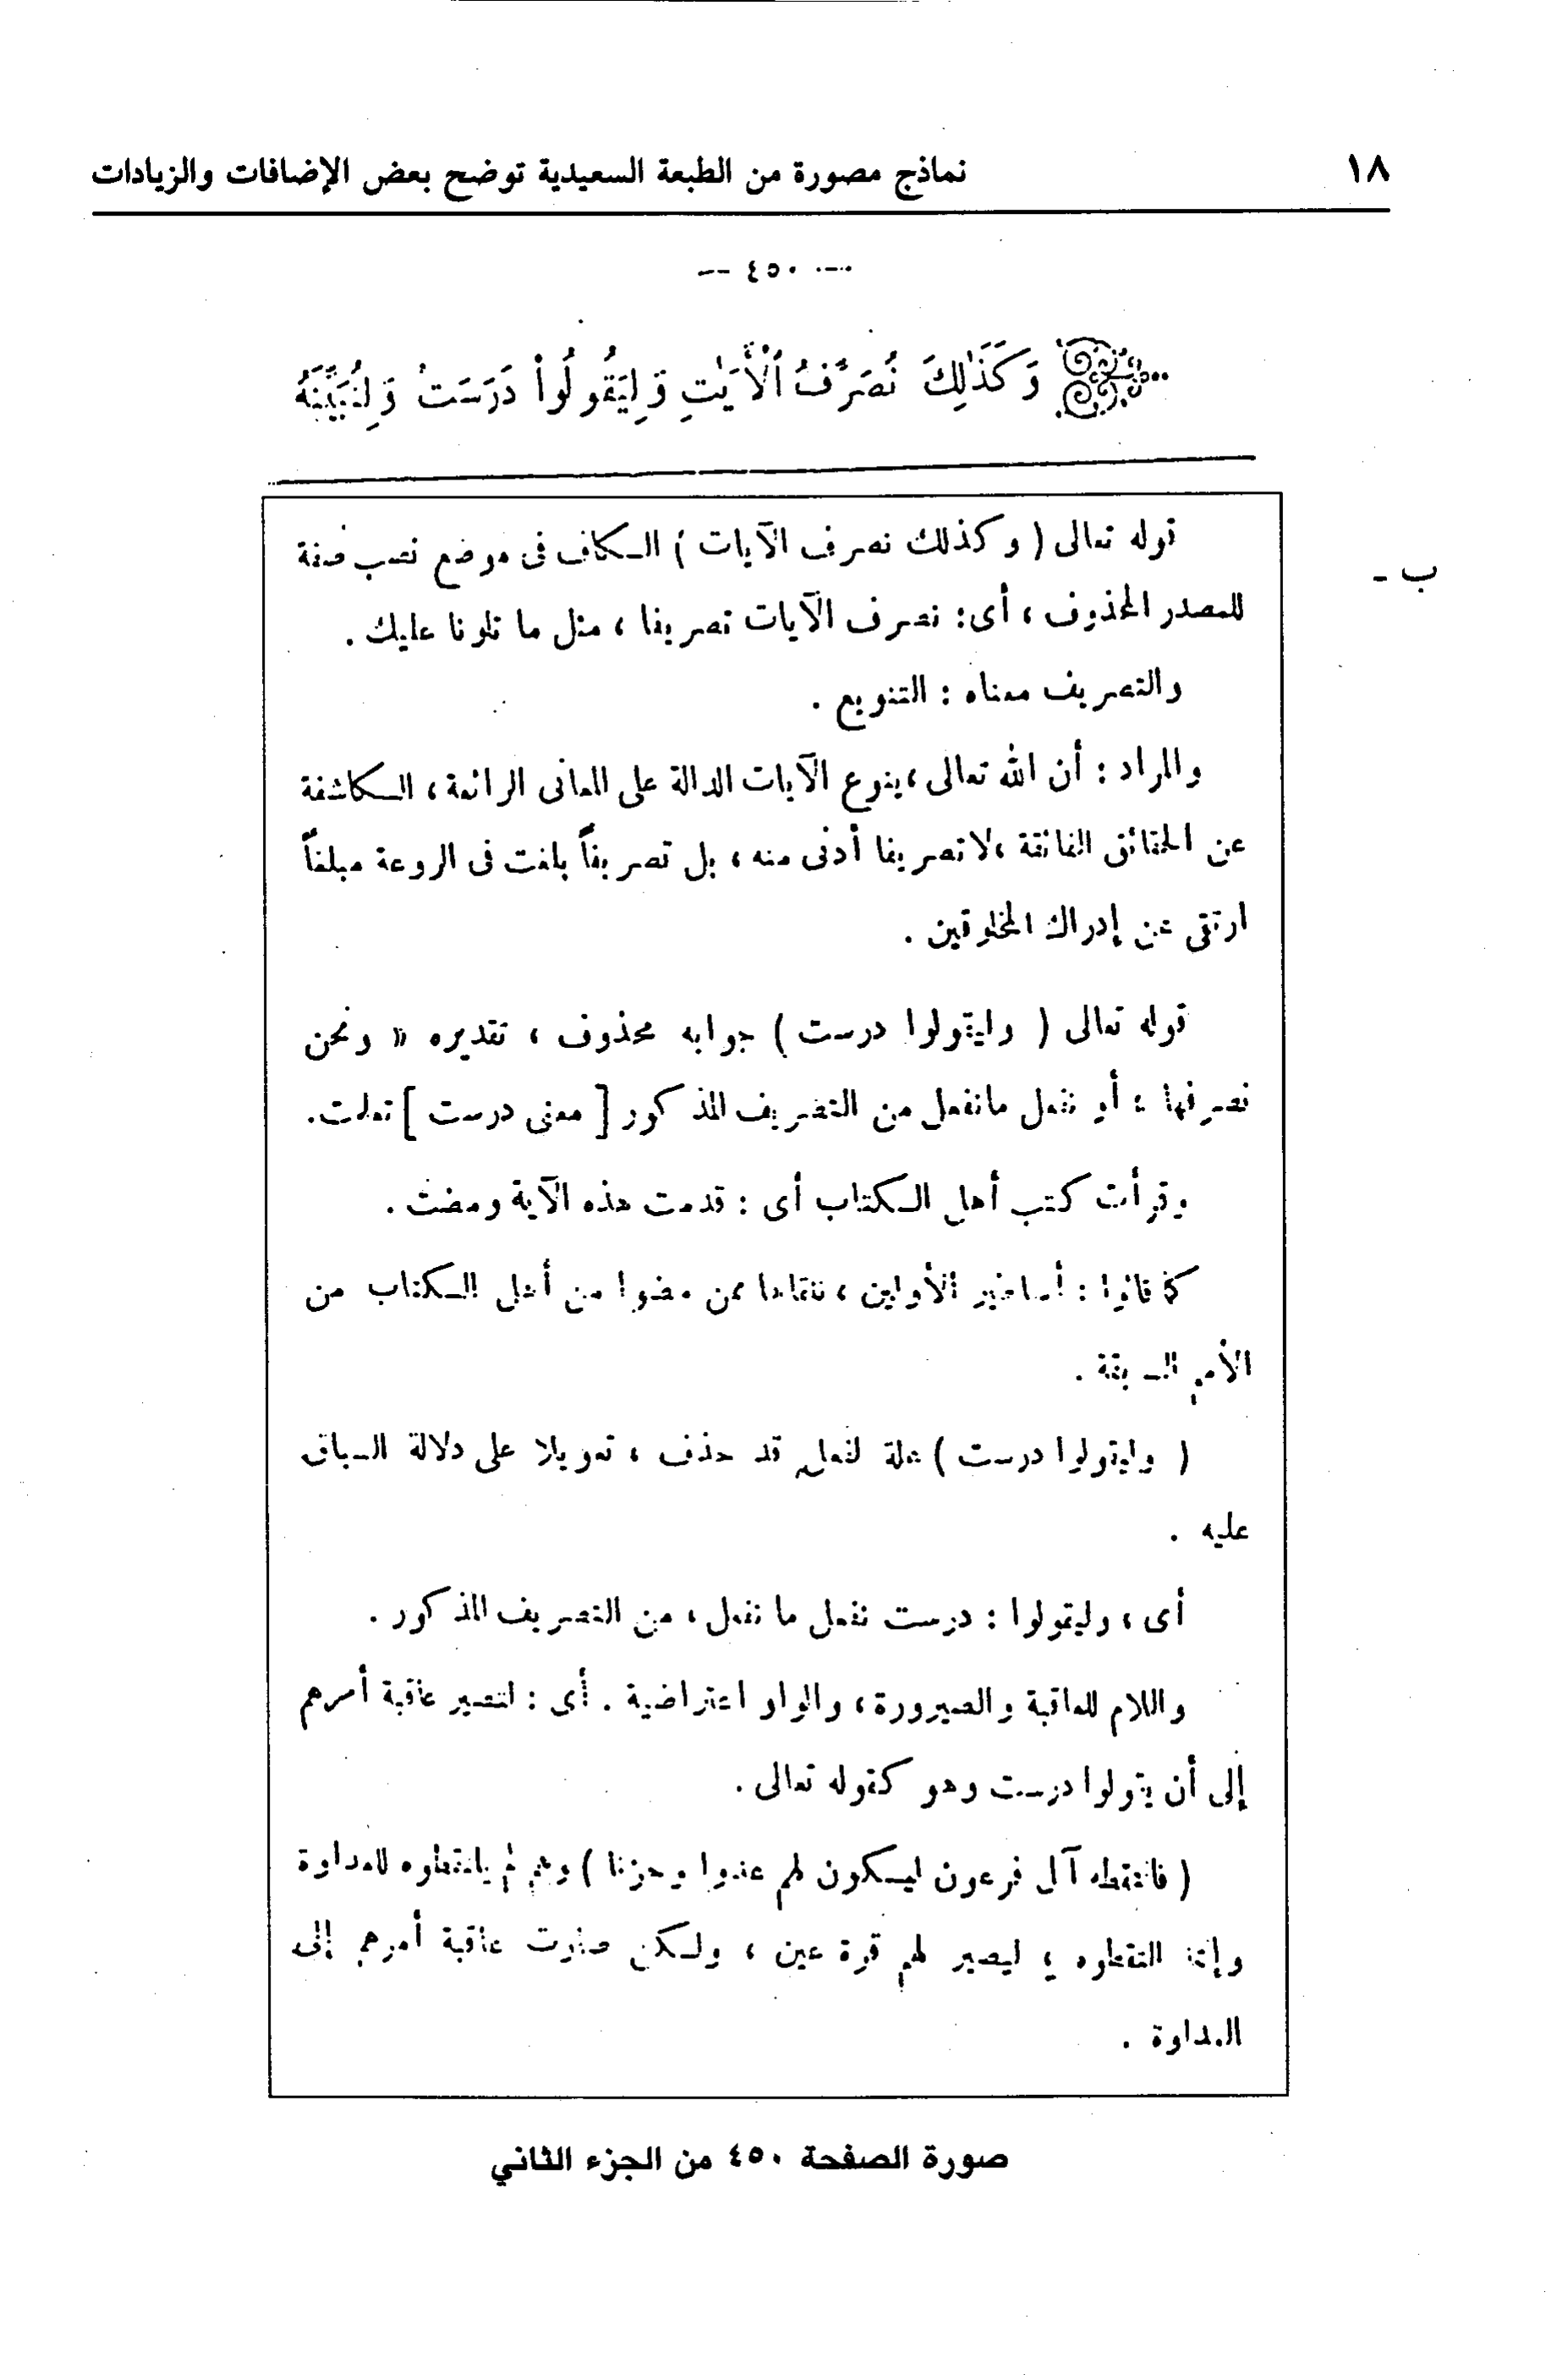 ١٨ نماذج مصورة من الطبعة السعيدية توضح بعض الإضافات والزيادات
-- ٤٥٠ --
وَكَذَٰلِكَ نُصَرِّفُ ٱلْأَيَٰتِ وَلِيَقُولُواْ دَرَسْتَ وَلِنُبَيِّنَهُ
ب -
قوله تعالى ( وكذلك نصرف الآيات ) الكاف فى موضع نصب صفة
للمصدر المحذوف ، أى : نصرف الآيات تصريفا ، مثل ما تلونا عليك .
والتصريف معناه : التنويع .
والمراد : أن الله تعالى ، ينوع الآيات الدالة على المعانى الرائعة ، الكاشفة
عن الحقائق الفائقة ، لا تصريفا أدنى منه ، بل تصريفاً بلغت فى الروعة مبلغاً
ارتقى عن إدراك المخلوقين .
قوله تعالى ( وليقولوا درست ) جوابه محذوف ، تقديره « ونحن
نصرفها ؛ أو نفعل ما نفعل من التصريف المذكور [ معنى درست ] تعلمت .
وقرأت كتب أهل الكتاب أى : قدمت هذه الآية ومضت .
كما قالوا : أساطير الأولين ، تلقاها ممن مضوا من أهل الكتاب من
الأمم السابقة .
( وليقولوا درست ) علة لفعل قد حذف ، تعويلا على دلالة السياق
عليه .
أى ، وليقولوا : درست نفعل ما نفعل ، من التصريف المذكور .
واللام للعاقبة والصيرورة ، والواو اعتراضية . أى : لتصير عاقبة أمرهم
إلى أن يقولوا درست وهو كقوله تعالى .
( فالتقطه آل فرعون ليكون لهم عدوا وحزنا ) وهم لم يلتقطوه للعداوة
وإنما التقطوه ؛ ليصير لهم قرة عين ، ولكن صارت عاقبة أمرهم إلى
العداوة .
صورة الصفحة ٤٥٠ من الجزء الثاني